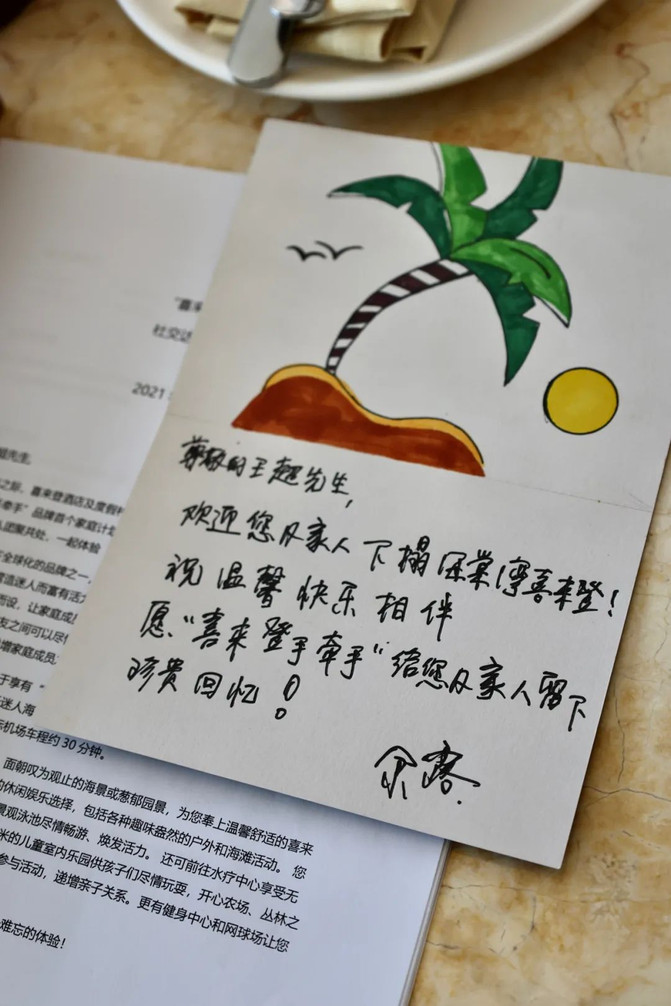 尊敬的王超先生,
欢迎您及家人下榻海棠湾喜来登!
祝温馨快乐相伴
愿"喜来登手牵手"给您及家人留下
珍贵回忆!
余露.
"喜来
社交达
2021
先生,
之际,喜来登酒店及度假
牵手"品牌首个家庭计划
团聚共处,一起体验
全球化的品牌之一,
营造迷人而富有活
而设,让家庭成
友之间可以尽
增家庭成员
于享有"
迷人海
机场车程约 30 分钟。
面朝叹为观止的海景或葱郁园景,为您奉上温馨舒适的喜来
的休闲娱乐选择,包括各种趣味盎然的户外和海滩活动。 您
景观泳池尽情畅游、焕发活力。 还可前往水疗中心享受无
米的儿童室内乐园供孩子们尽情玩耍,开心农场、丛林之
参与活动,递增亲子关系。更有健身中心和网球场让您
难忘的体验!